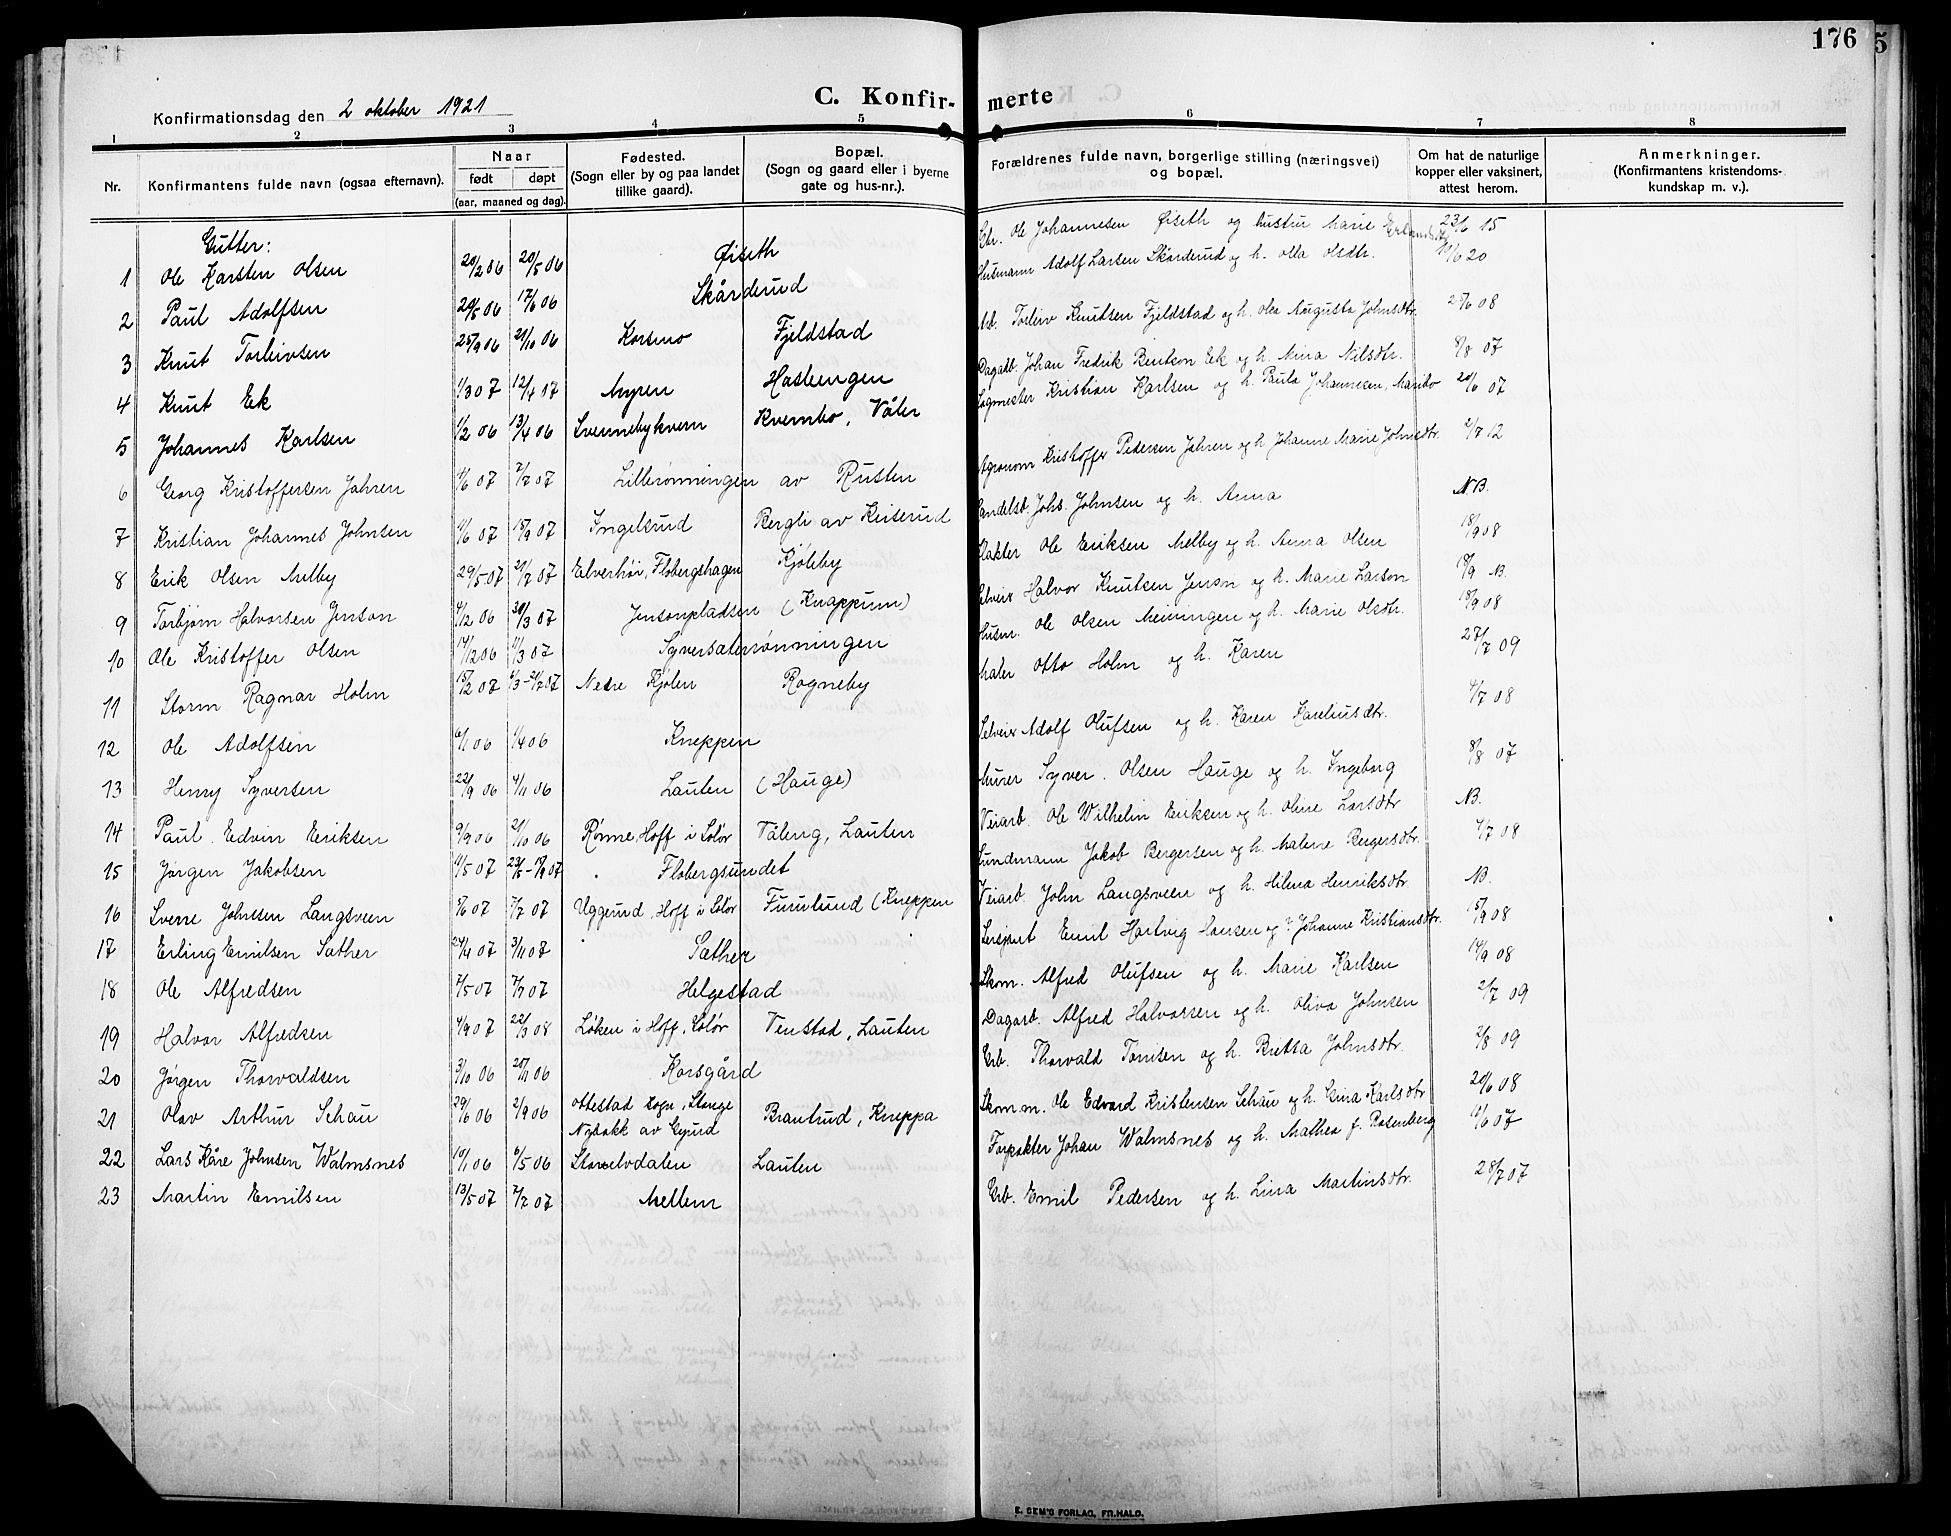 176
5
C. Konfir- merte
Konfirmationsdag den 2 oktober 1921
1 2 3 4 5 6 7 8
Nr. Konfirmantens fulde navn (ogsaa efternavn). Naar født døpt (aar, maaned og dag).
Fødested. (Sogn eller by og paa landet tillike gaard).
Bopæl. (Sogn og gaard eller i byerne gate og hus-nr.).
Forældrenes fulde navn, borgerlige stilling (næringsvei) og bopæl.
Om hat de naturlige kopper eller vaksinert, attest herom.
Anmerkninger. (Konfirmantens kristendoms- kundskap m. v.).
Gutter:
1 Ole Karsten Olsen 20/2 06 20/5 06 Øiseth Gbr. Ole Johannesen Øiseth og hustru Marie Erlandsdtr. 23/6 15
2 Paul Adolfsen 17/6 06 Skårderud Husmann Adolf Larsen Skårderud og h. Olla Olsdtr.
3 Knut Torleivsen 25/9 06 21/10 06 Korsmo Fjeldstad Arb. Torleiv Knutsen Fjeldstad og h. Olea Augusta Johnsdtr.
4 Knut Ek 1/3 07 12/4 07 Myren Hasleengen Dagarb. Johan Fredrik Bentson Ek og h. Mina Nilsdtr. 8/8 07
5 Johannes Karlsen 1/2 06 13/4 06 Svennebykvern Kvernbo, Våler Sagmester Kristian Karlsen og h. Paula Johannesen, Maribo 20/6 07
6 Georg Kristoffersen Jahren 4/6 07 7/7 07 Lillerønningen av Rusten Agronom Kristoffer Pedersen Jahren og h. Johanne Marie Johnsdtr.
7 Kristian Johannes Johnsen 1/6 07 15/9 07 Ingelsrud Bergli av Keiserud Handelsb. Johs. Johnsen og h. Anna N.B.
8 Erik Olsen Melby 29/5 07 21/7 07 Elverhøi, Flobergshagen Kjøleby Slakter Ole Eriksen Melby og h. Anna Olsen 18/9 08
9 Torbjørn Halvorsen Jenson 4/12 06 30/3 07 Jensonpladsen (Knappum) Selveier Halvor Knutsen Jenson og h. Marie Larson
10 Ole Kristoffer Olsen 14/12 06 1/3 07 Syversæterrønningen Husm. Ole Olsen og h. Marie Olsdtr. 18/9 08
11 Storm Ragnar Holm 15/2 07 Nedre Kjølen Rogneby Maler Otto Holm og h. Karen 27/7 09
12 Ole Adolfsen 1/4 06 Kneppen Selveier Adolf Olufsen og h. Karen Kareliusdtr. 4/7 08
13 Henry Syversen 22/9 06 4/11 06 Lauten (Hauge) Murer Syver Olsen Hauge og h. Ingeborg 8/8 07
14 Paul Edvin Eriksen 9/9 06 21/10 06 Rønne, Hoff i Solør Våleng, Lauten Veiarb. Ole Wilhelm Eriksen og h. Oline Larsdtr. NB.
15 Jørgen Jakobsen 11/5 07 Flobergsundet Sundmann Jakob Bergersen og h. Malene Bergersdtr. 4/7 08
16 Sverre Johnsen Langsveen 7/7 07 Uggerud, Hoff i Solør Furulund (Kneppen Veiarb. John Langsveen og h. Hilma Henriksdtr. NB.
17 Erling Emilsen Sæther 24/4 07 3/11 07 Sæther Sersjant Emil Hartvig Hansen og h. Johanne Kristiansdtr. 15/9 08
18 Ole Alfredsen 7/5 07 7/7 07 Helgestad Skom. Alfred Olufsen og h. Marie Karlsen 14/9 08
19 Halvor Alfredsen 4/9 07 22/3 08 Løken i Hoff, Solør Venstad, Lauten Dagarb. Alfred Halvorsen og h. Oliva Johnsen 2/7 09
20 Jørgen Thorvaldsen 3/10 06 Korsgård Gbr. Thorvald Tønsen og h. Berta Johnsdtr. 2/8 09
21 Olav Arthur Schau 29/6 06 2/9 06 Ottestad sogn, Stange Nybakk av Gjurd Brantrud, Kneppa Skom.m. Ole Edvard Kristensen Schau og h. Gina Karlsdtr. 20/6 08
22 Lars Kåre Johnsen Walmsnes 10/1 06 6/5 06 Storelvdalen Lauten Forpakter Johan Walmsnes og h. Mathea f. Rosenberg 11/6 07
23 Martin Emilsen 13/5 07 7/7 07 Mellem Gbr. Emil Pedersen og h. Lina Martinsdtr. 28/7 07
E. SEM'S FORLAG, FR.HALD.